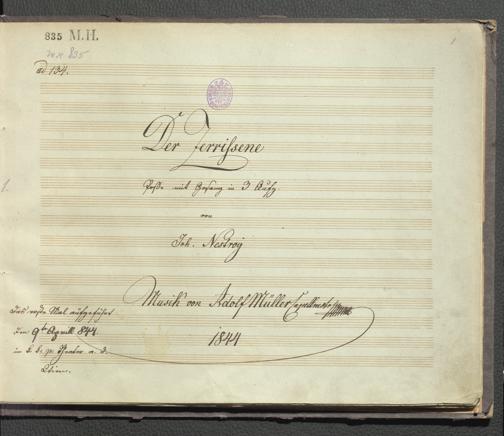 835 M.H.
1
ad 134.
Der Zerrißene
Posse mit Gesang in 3 Aufz.
von
Joh. Nestroy
Musik von Adolf Müller Capellmstr
1844
Das erste Mal aufgeführt
den 9t April 844
in k. k. pr. Theater a. d.
Wien.
1.